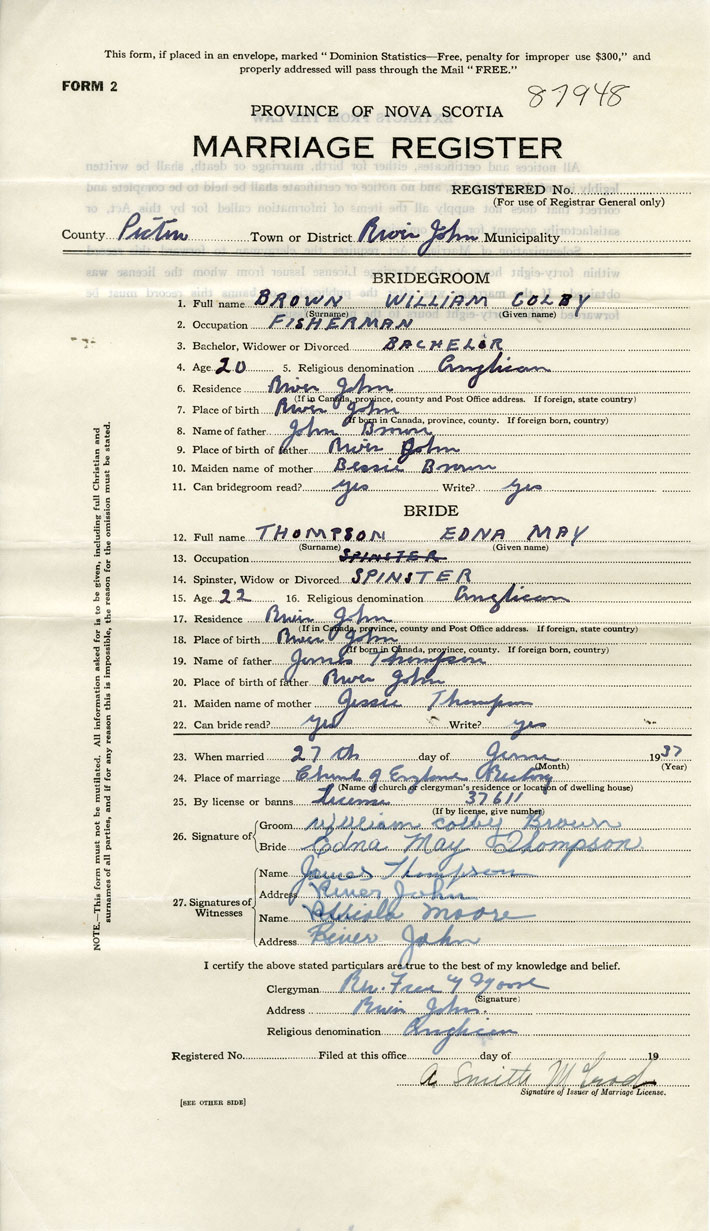 This form, if placed in an envelope, marked " Dominion Statistics—Free, penalty for improper use $300," and
properly addressed will pass through the Mail " FREE."
FORM 2
87948
PROVINCE OF NOVA SCOTIA
MARRIAGE REGISTER
REGISTERED No.
(For use of Registrar General only)
County Pictou Town or District River John Municipality
BRIDEGROOM
1. Full name BROWN WILLIAM COLBY
(Surname) (Given name)
2. Occupation FISHERMAN
3. Bachelor, Widower or Divorced BACHELOR
4. Age 20 5. Religious denomination Anglican
6. Residence River John
(If in Canada, province, county and Post Office address. If foreign, state country)
7. Place of birth River John
(If born in Canada, province, county. If foreign born, country)
8. Name of father John Brown
9. Place of birth of father River John
10. Maiden name of mother Bessie Brown
11. Can bridegroom read? yes Write? yes
BRIDE
12. Full name THOMPSON EDNA MAY
(Surname) (Given name)
13. Occupation SPINSTER
14. Spinster, Widow or Divorced SPINSTER
15. Age 22 16. Religious denomination Anglican
17. Residence River John
(If in Canada, province, county and Post Office address. If foreign, state country)
18. Place of birth River John
(If born in Canada, province, county. If foreign born, country)
19. Name of father James Thompson
20. Place of birth of father River John
21. Maiden name of mother Jessie Thompson
22. Can bride read? yes Write? yes
23. When married 27th day of June 1937
(Month) (Year)
24. Place of marriage Church of England Rectory
(Name of church or clergyman's residence or location of dwelling house)
25. By license or banns License 37611
(If by license, give number)
26. Signature of Groom William Colby Brown
Bride Edna May Thompson
27. Signatures of Witnesses Name James Thompson
Address River John
Name Moore
Address River John
I certify the above stated particulars are true to the best of my knowledge and belief.
Clergyman Rev. Fred Y Moore
(Signature)
Address River John.
Religious denomination Anglican
Registered No. Filed at this office day of 19
A Smith
Signature of Issuer of Marriage License.
[SEE OTHER SIDE]
NOTE.—This form must not be mutilated. All information asked for is to be given, including full Christian and
surnames of all parties, and if for any reason this is impossible, the reason for the omission must be stated.